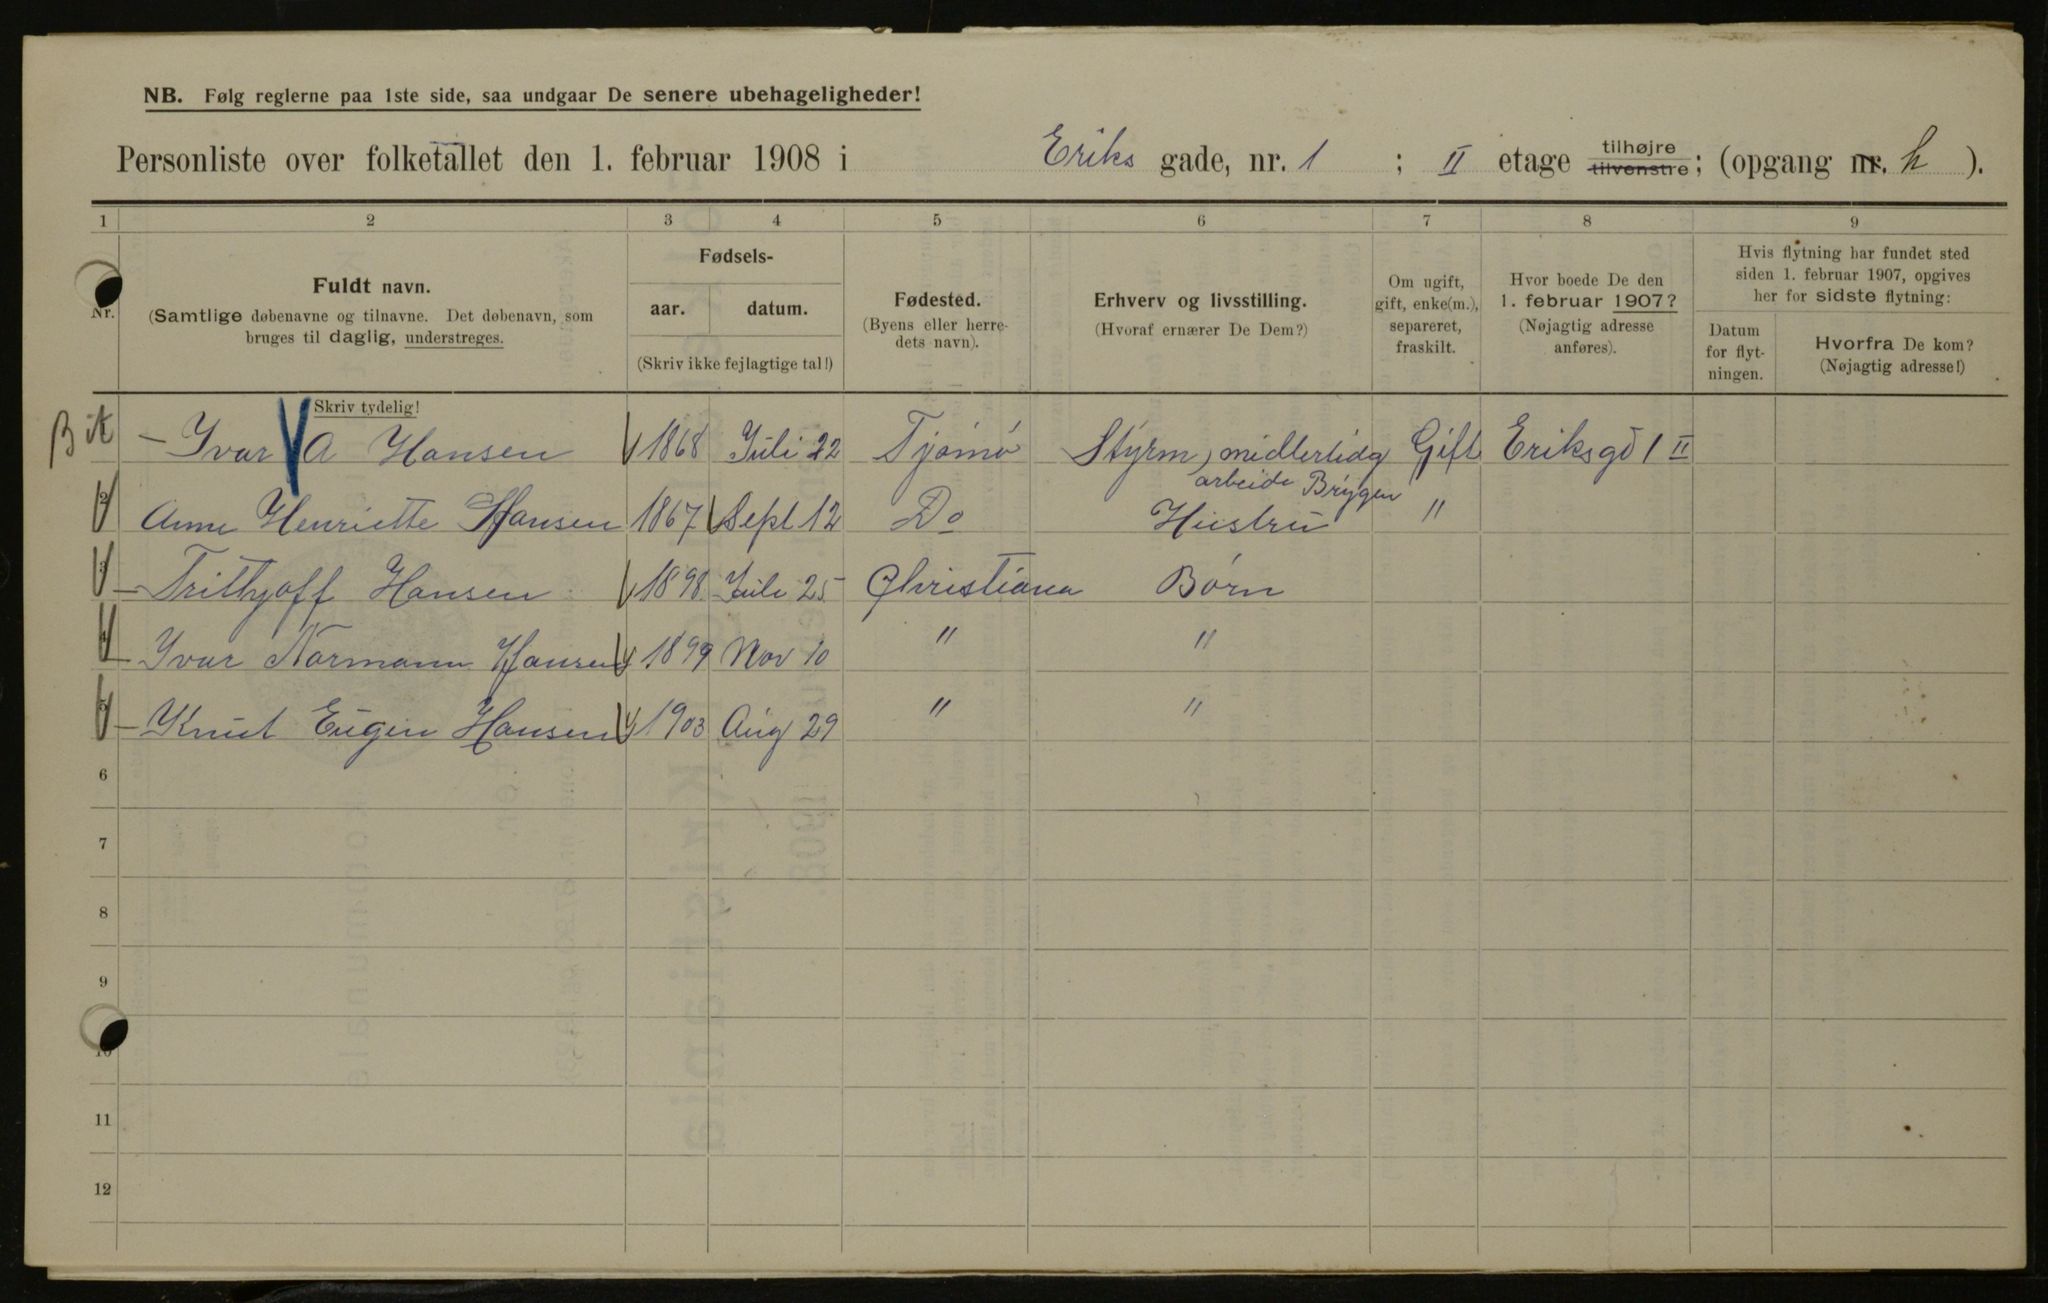 NB. Følg reglerne paa 1ste side, saa undgaar De senere ubehageligheder!
Personliste over folketallet den 1. februar 1908 i Eriks gade, nr. 1 ; II etage tilhøjre tilvenstre; (opgang nr. h ).
1 2 3 4 5 6 7 8 9
Nr.
Fuldt navn.
(Samtlige døbenavne og tilnavne. Det døbenavn, som
bruges til daglig, understreges.
Fødsels-
aar. datum.
(Skriv ikke fejlagtige tal!)
Fødested.
(Byens eller herre-
dets navn).
Erhverv og livsstilling.
(Hvoraf ernærer De Dem?)
Om ugift,
gift, enke(m.),
separeret,
fraskilt.
Hvor boede De den
1. februar 1907?
(Nøjagtig adresse
anføres).
Hvis flytning har fundet sted
siden 1. februar 1907, opgives
her for sidste flytning:
Datum
for flyt-
ningen.
Hvorfra De kom?
(Nøjagtig adresse!)
Skriv tydelig!
Yvar A Hansen 1868 Juli 22 Tjømø Styrm, midlertidg Gift Eriksgd 1 II
arbeide Brygen
2 Anne Henriette Hansen 1867 Sept 12 Do Hustru "
3 Trithjoff Hansen 1898 Juli 25 Christiana Børn
4 Yvar Normann Hansen 1899 Nov 10 " "
5 Knut Eugen Hansen 1903 Aug 29 " "
6
7
8
9
10
11
12